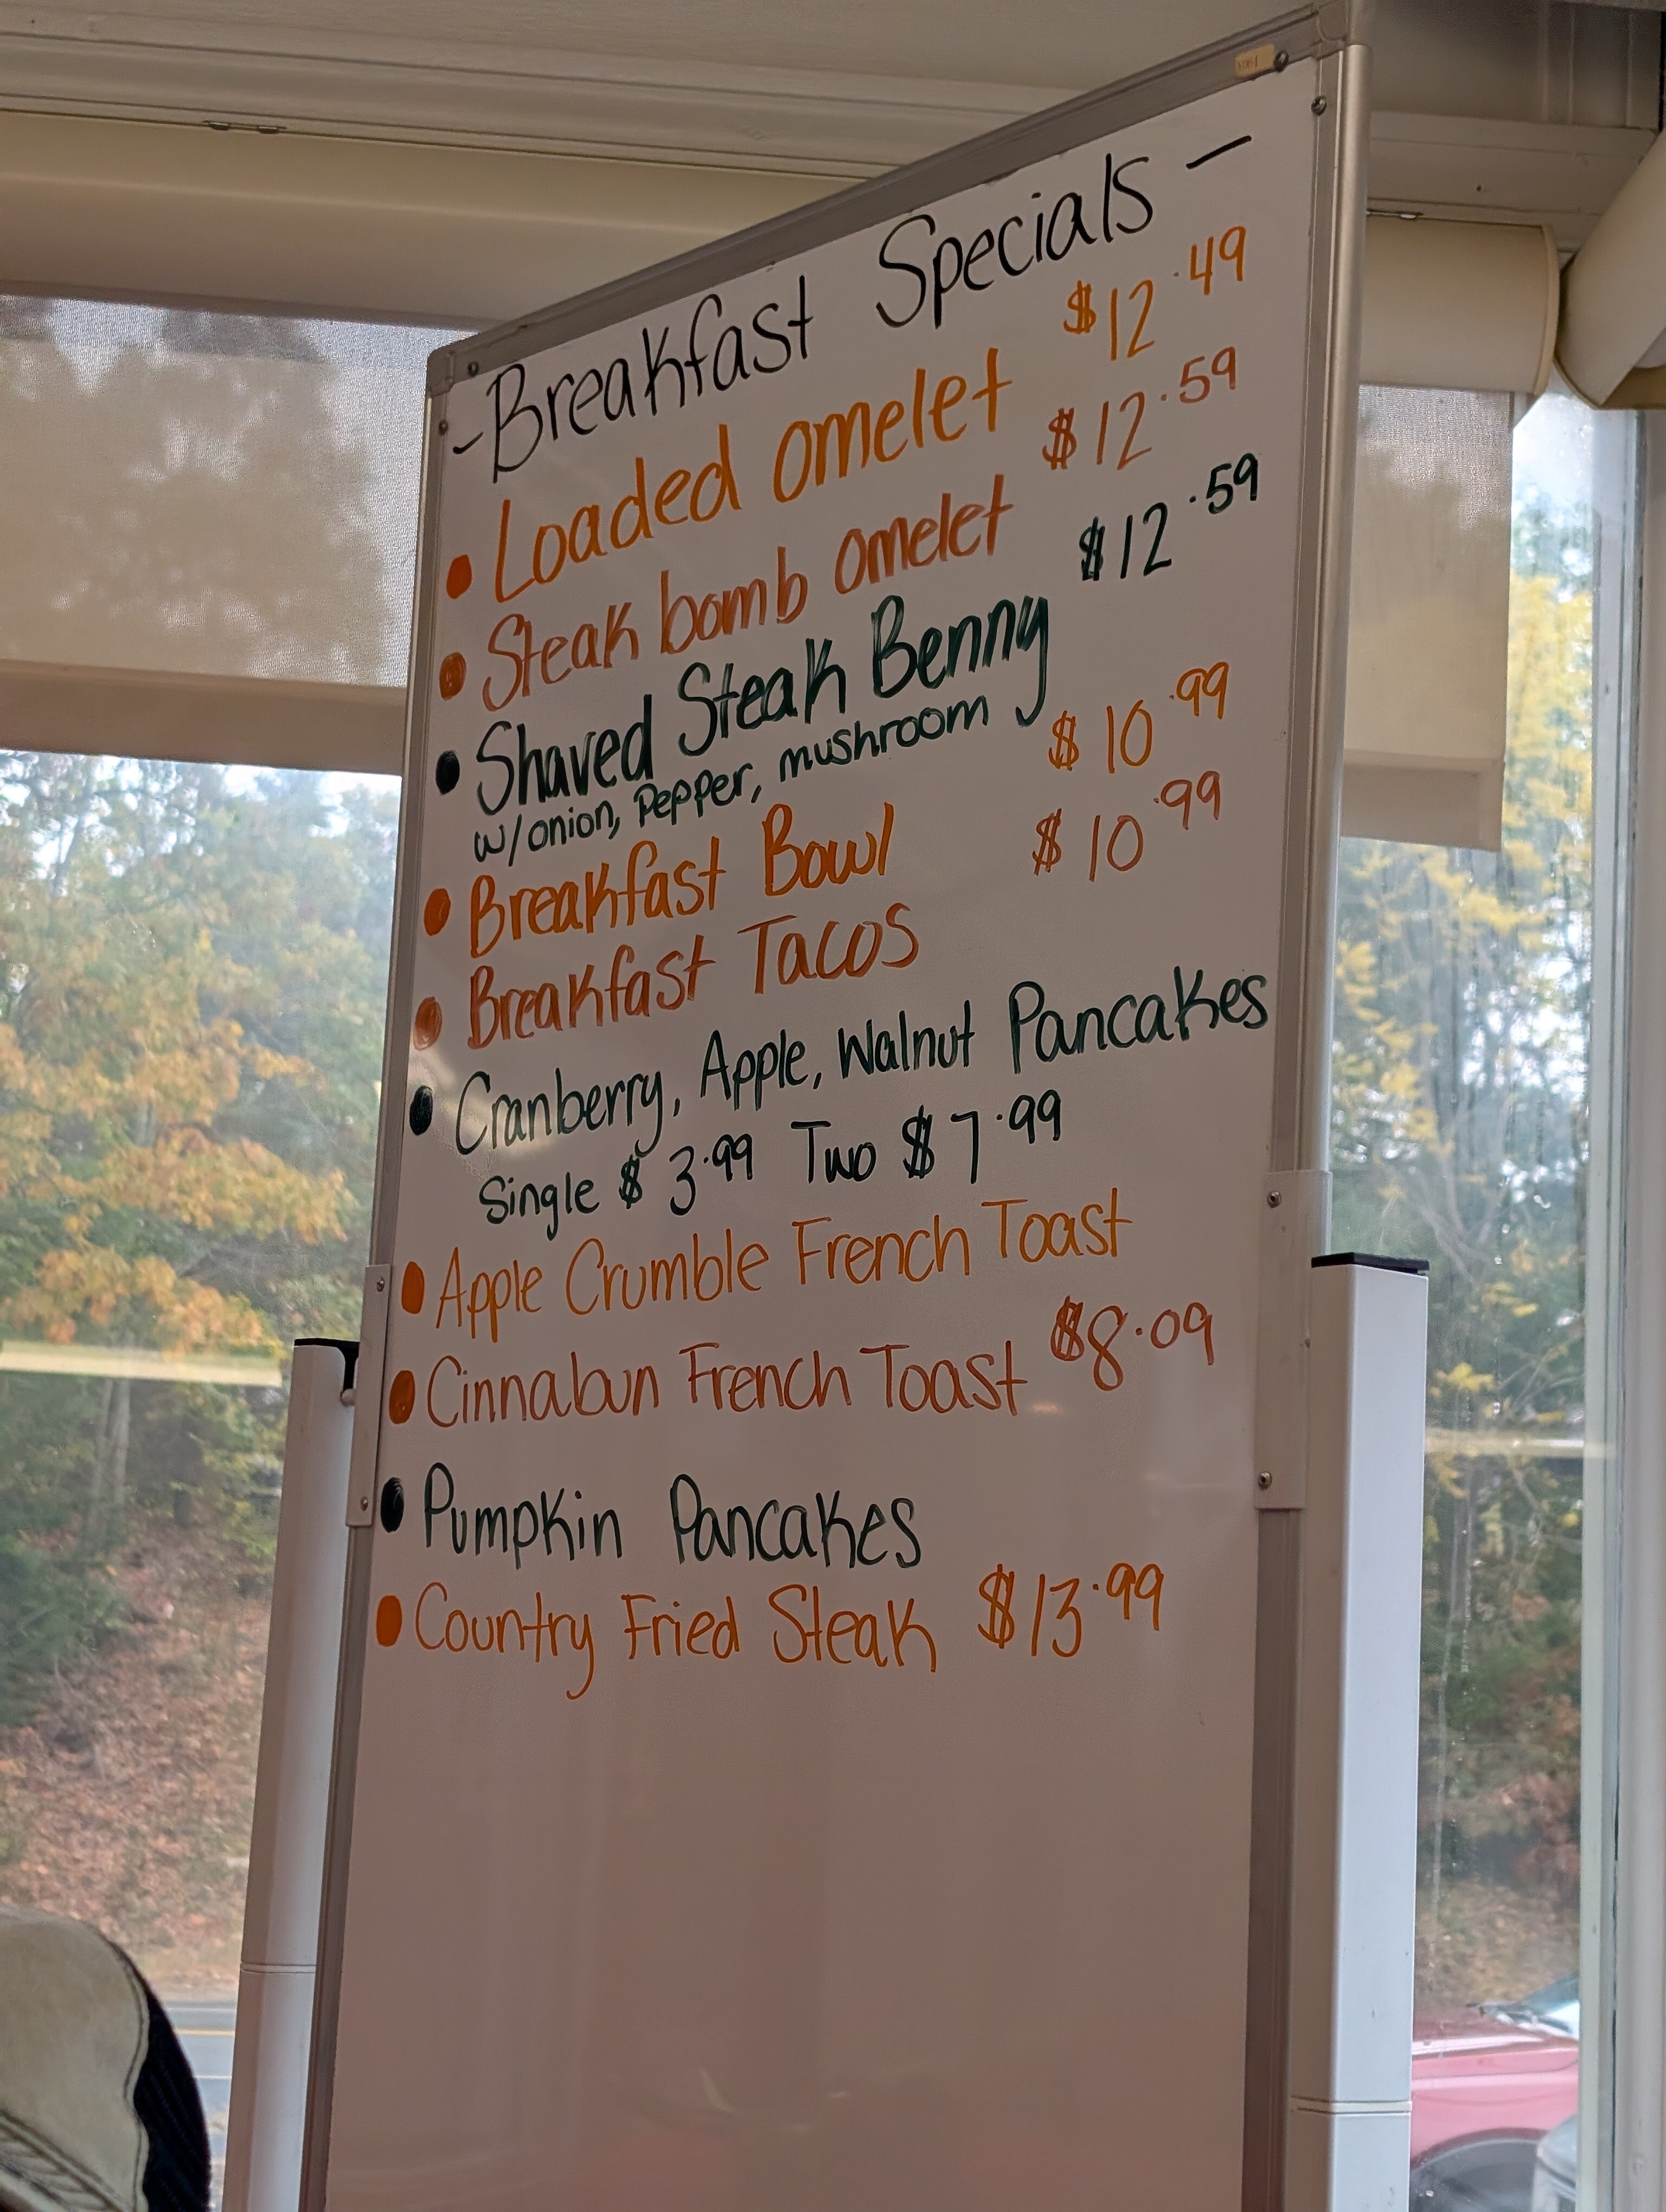 -Breakfast Specials-
• Loaded omelet $12.49
• Steak bomb omelet $12.59
• Shaved Steak Benny $12.59
w/onion, Pepper, mushroom
• Breakfast Bowl $10.99
• Breakfast Tacos $10.99
• Cranberry, Apple, Walnut Pancakes
Single $3.99 Two $7.99
• Apple Crumble French Toast
• Cinnabun French Toast $8.09
• Pumpkin Pancakes
• Country Fried Steak $13.99